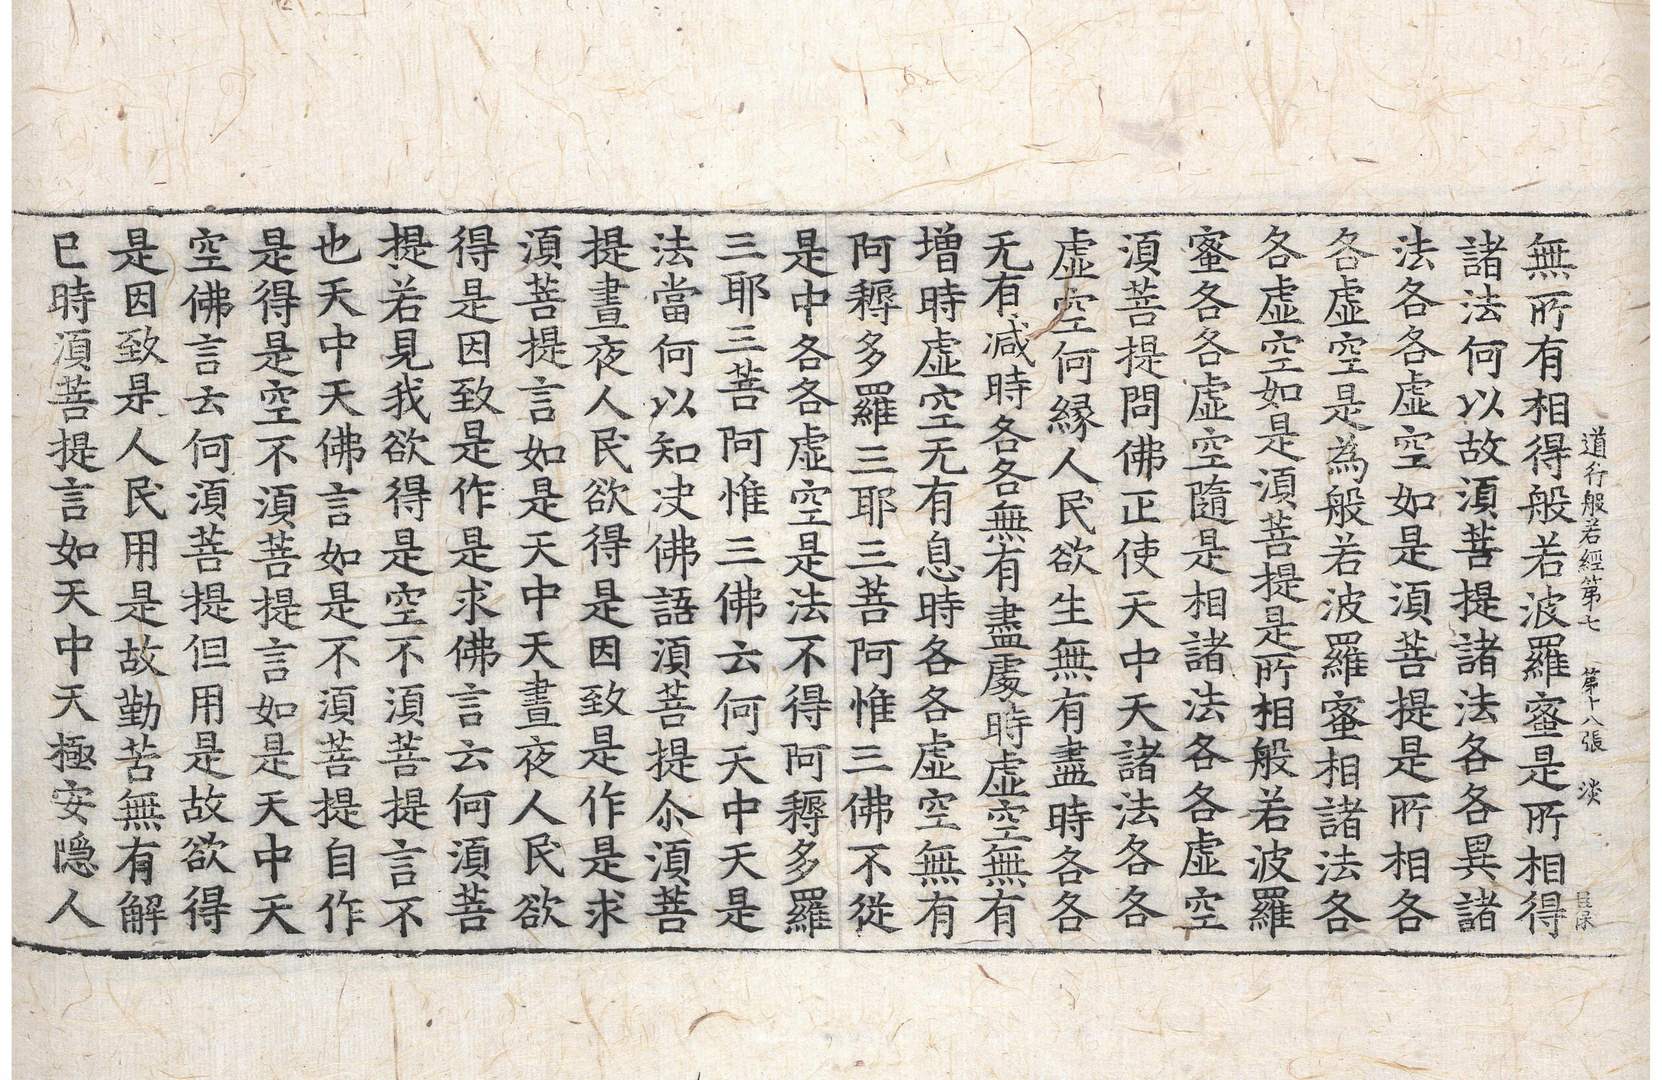 道行般若經第七 第十八張 淡
無所有相得般若波羅蜜是所相得
諸法何以故須菩提諸法各各異諸
法各各虛空如是須菩提是所相各
各虛空是為般若波羅蜜相諸法各
各虛空如是須菩提是所相般若波羅
蜜各各虛空隨是相諸法各各虛空
須菩提問佛正使天中天諸法各各
虛空何緣人民欲生無有盡時各各
无有減時各各無有盡處時虛空無有
增時虛空无有息時各各虛空無有
阿耨多羅三耶三菩阿惟三佛不從
是中各各虛空是法不得阿耨多羅
三耶三菩阿惟三佛云何天中天是
法當何以知決佛語須菩提尒須菩
提晝夜人民欲得是因致是作是求
須菩提言如是天中天晝夜人民欲
得是因致是作是求佛言云何須菩
提若見我欲得是空不須菩提言不
也天中天佛言如是不須菩提自作
是得是空不須菩提言如是天中天
空佛言云何須菩提但用是故欲得
是因致是人民用是故勤苦無有解
已時須菩提言如天中天極安隱人